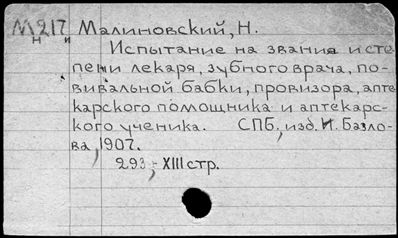 М 217 Малиновский, Н.
н и Испытание на звания и сте
пени лекаря, зубного врача, по-
вивальной бабки, провизора, апте
карского помощника и аптекарс-
кого ученика. СПБ, изд. И. Базло-
ва, 1907.
293, XIII стр.